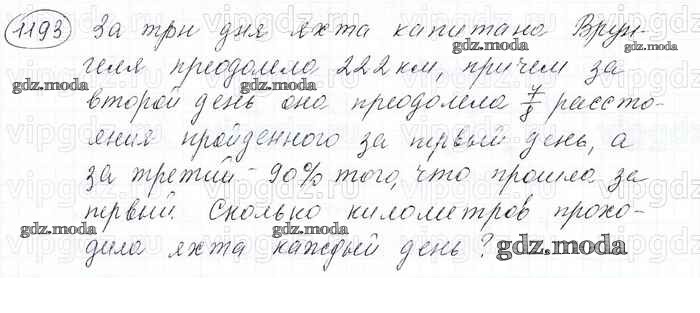 1193 За три дня яхта капитана Врун-
геля преодолела 222 км, причем за
второй день она преодолела 7/8 рассто-
яния пройденного за первый день, а
за третий - 90% того, что прошла за
первый. Сколько километров прохо-
дила яхта каждый день?
gdz.moda
gdz.moda
gdz.moda
gdz.moda
gdz.moda
gdz.moda
gdz.moda
gdz.moda